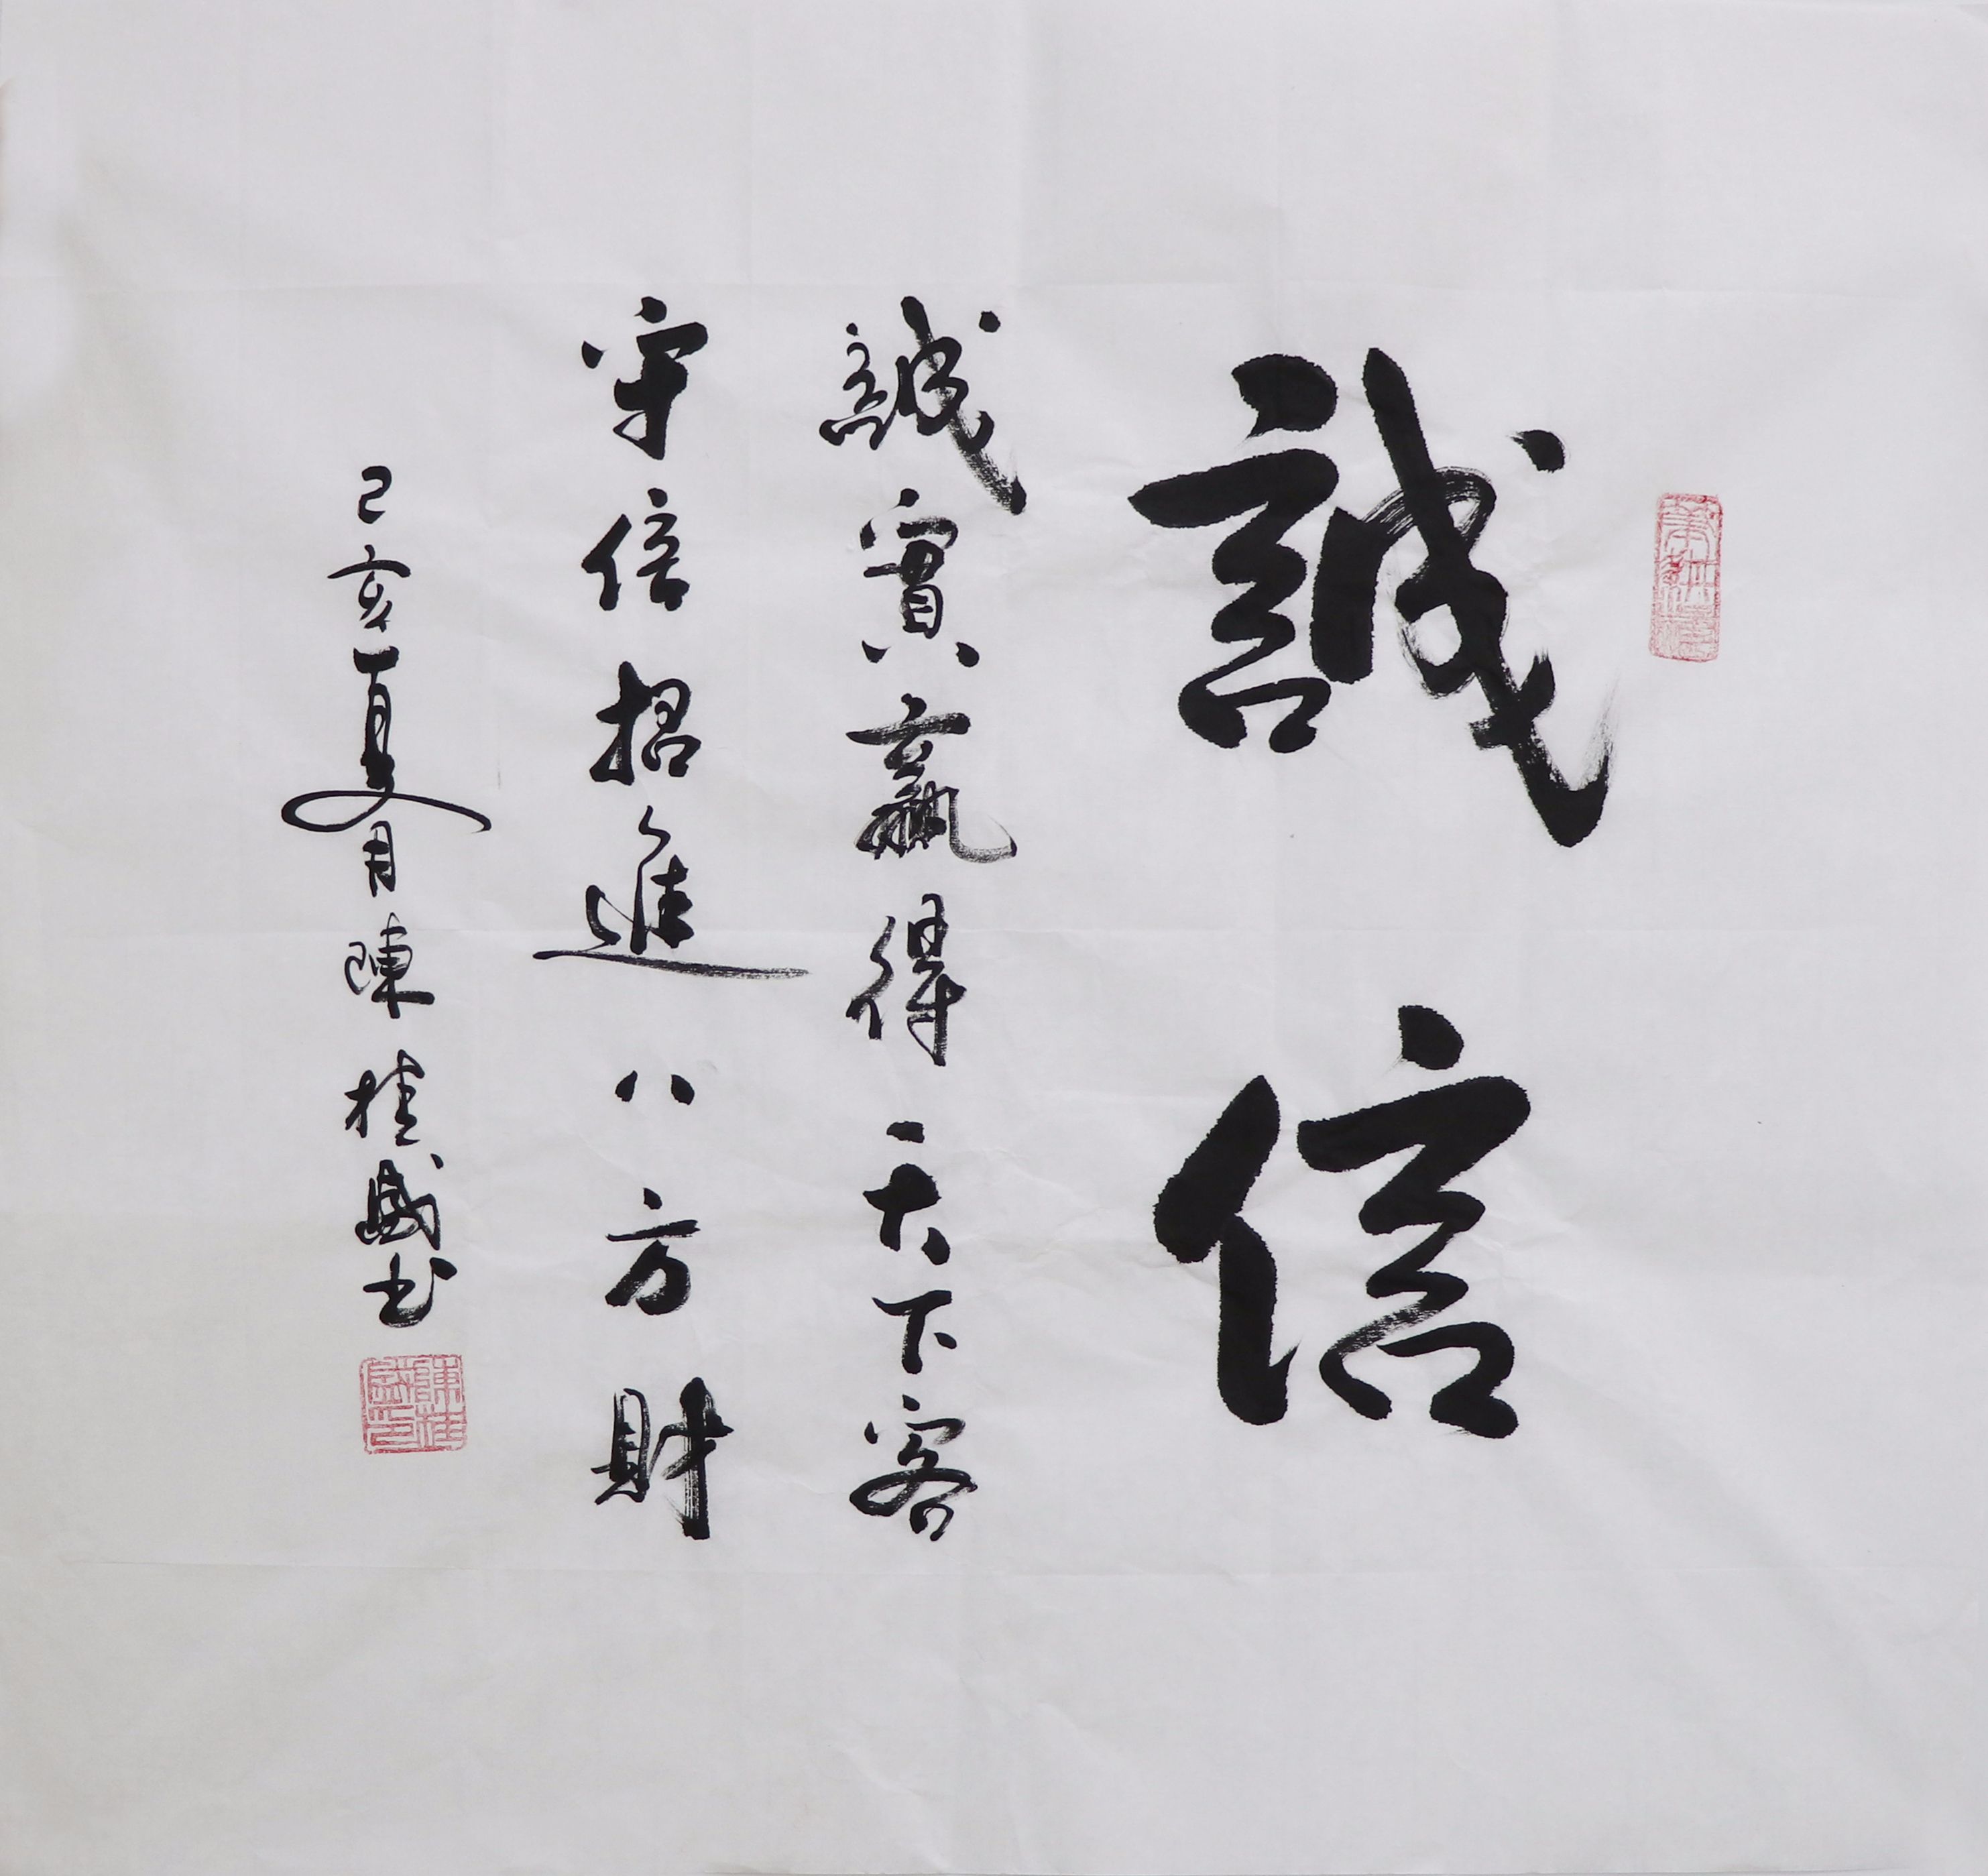 誠信
誠實贏得天下客
守信招進八方財
己亥夏月陳桂盛书
陳桂盛印